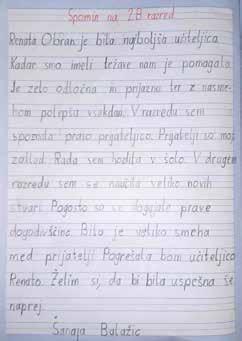 Spomin na 2.B razred
Renata Obran je bila najboljša učiteljica.
Kadar smo imeli težave nam je pomagala.
Je zelo odločna in prijazna ter z nasme-
hom polepša vsakdan. V razredu sem
spoznala pravo prijateljico. Prijatelji so moj
zaklad. Rada sem hodila v šolo. V drugem
razredu sem se naučila veliko novih
stvari. Pogosto so se dogajale prave
dogodivščine. Bilo je veliko smeha
med prijatelji. Pogrešala bom učiteljico
Renato. Želim si, da bi bila uspešna še
naprej.
Sanaja Balažic